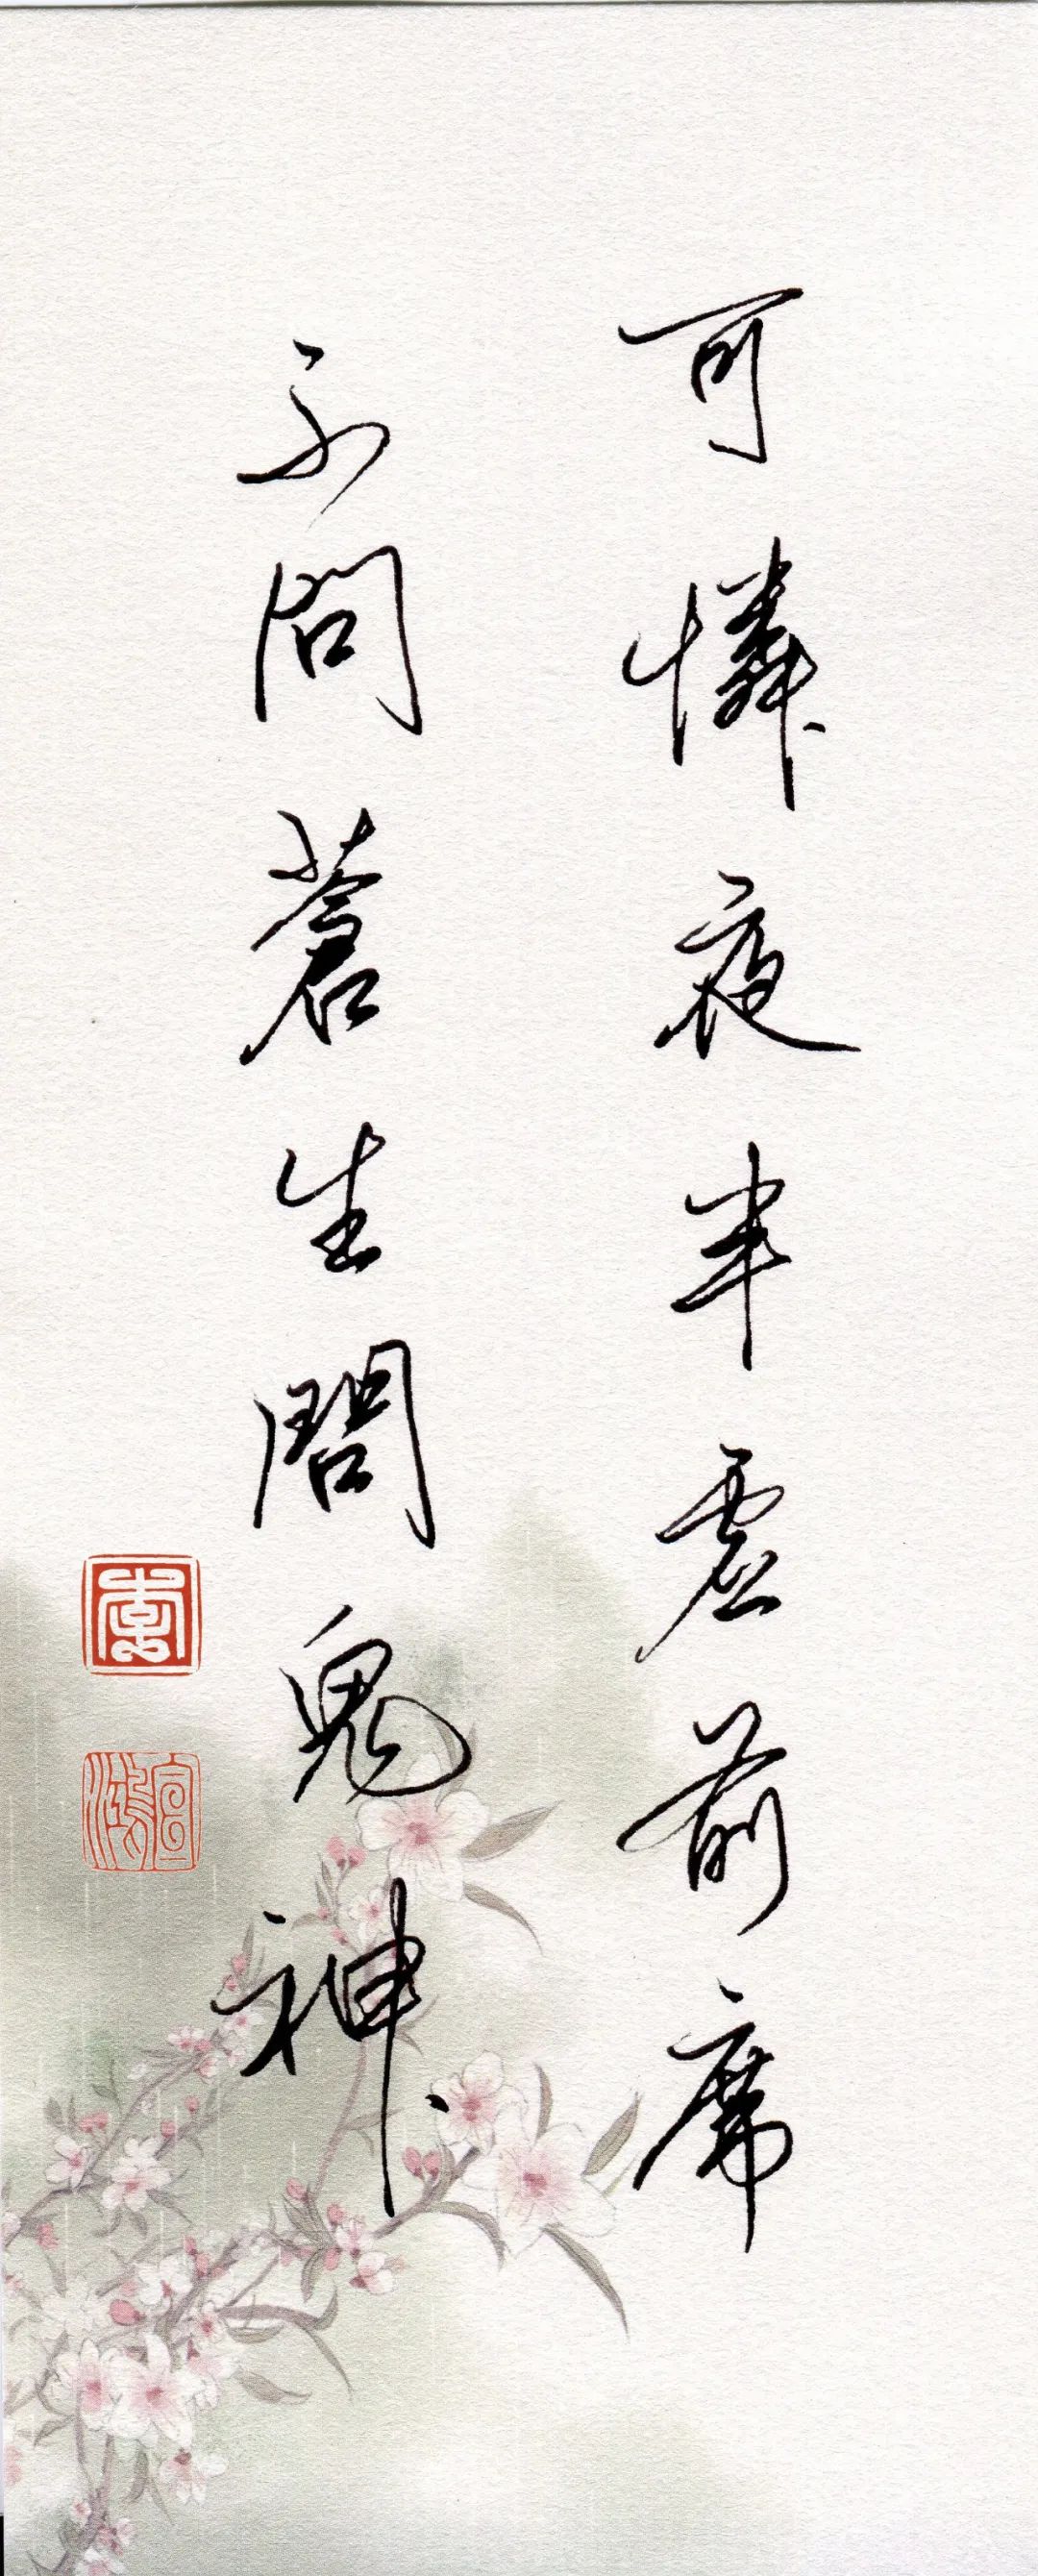 可憐夜半虛前席
不問蒼生問鬼神
李
宣鴻